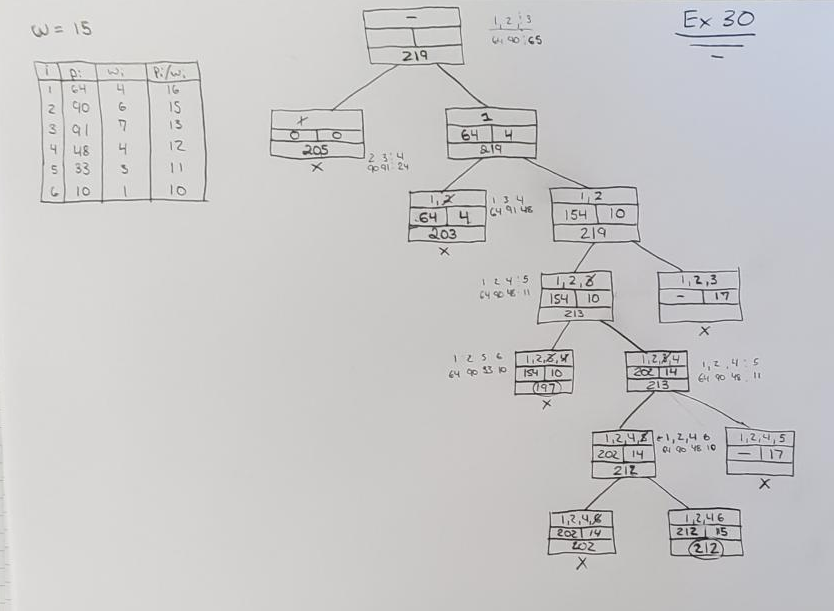 Ex 30
W = 15
i pi wi Pi/wi
1 64 4 16
2 90 6 15
3 91 7 13
4 48 4 12
5 33 3 11
6 10 1 10
-
219
1, 2, 3
64 90 65
1
0 0
205
X
2 3 4
90 91 24
1
64 4
219
1, 2
64 4
203
X
1 3 4
64 91 48
1, 2
154 10
219
1 2 4 5
64 90 48 11
1, 2, 3
154 10
213
1, 2, 3
- 17
X
1 2 5 6
64 90 33 10
1, 2, 3, 4
154 10
197
X
1, 2, 3, 4
202 14
213
1, 2, 4 5
64 90 48 11
1, 2, 4, 5
202 14
212
1, 2, 4 6
64 90 48 10
1, 2, 4, 5
- 17
X
1, 2, 4, 6
202 14
202
X
1, 2, 4 6
212 15
212